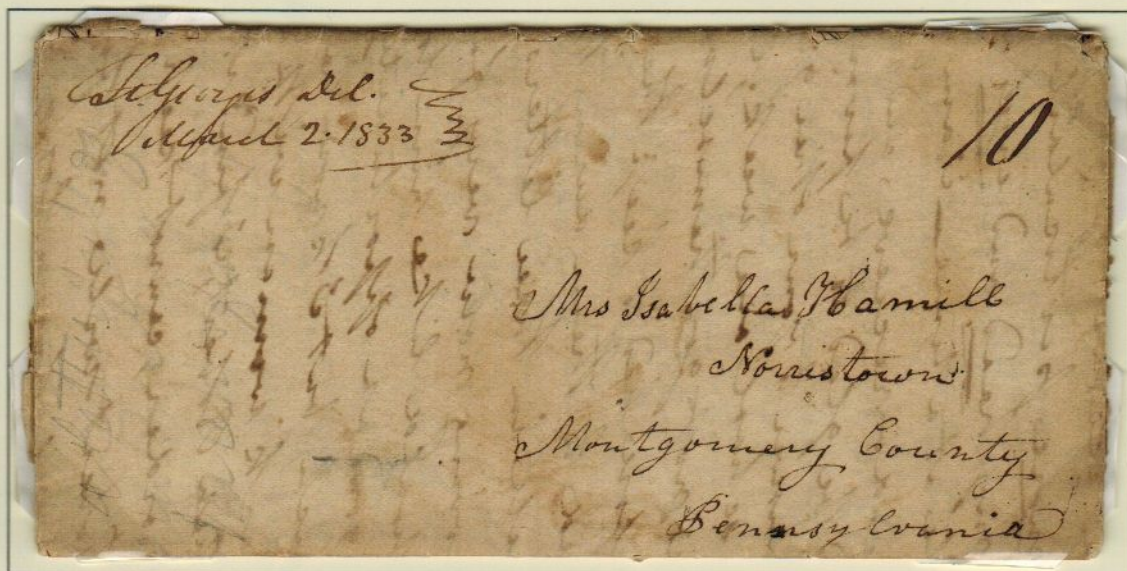 St Georges Del.
March 2. 1833
10
Mrs Isabella Hamill
Norristown
Montgomery County
Pennsylvania